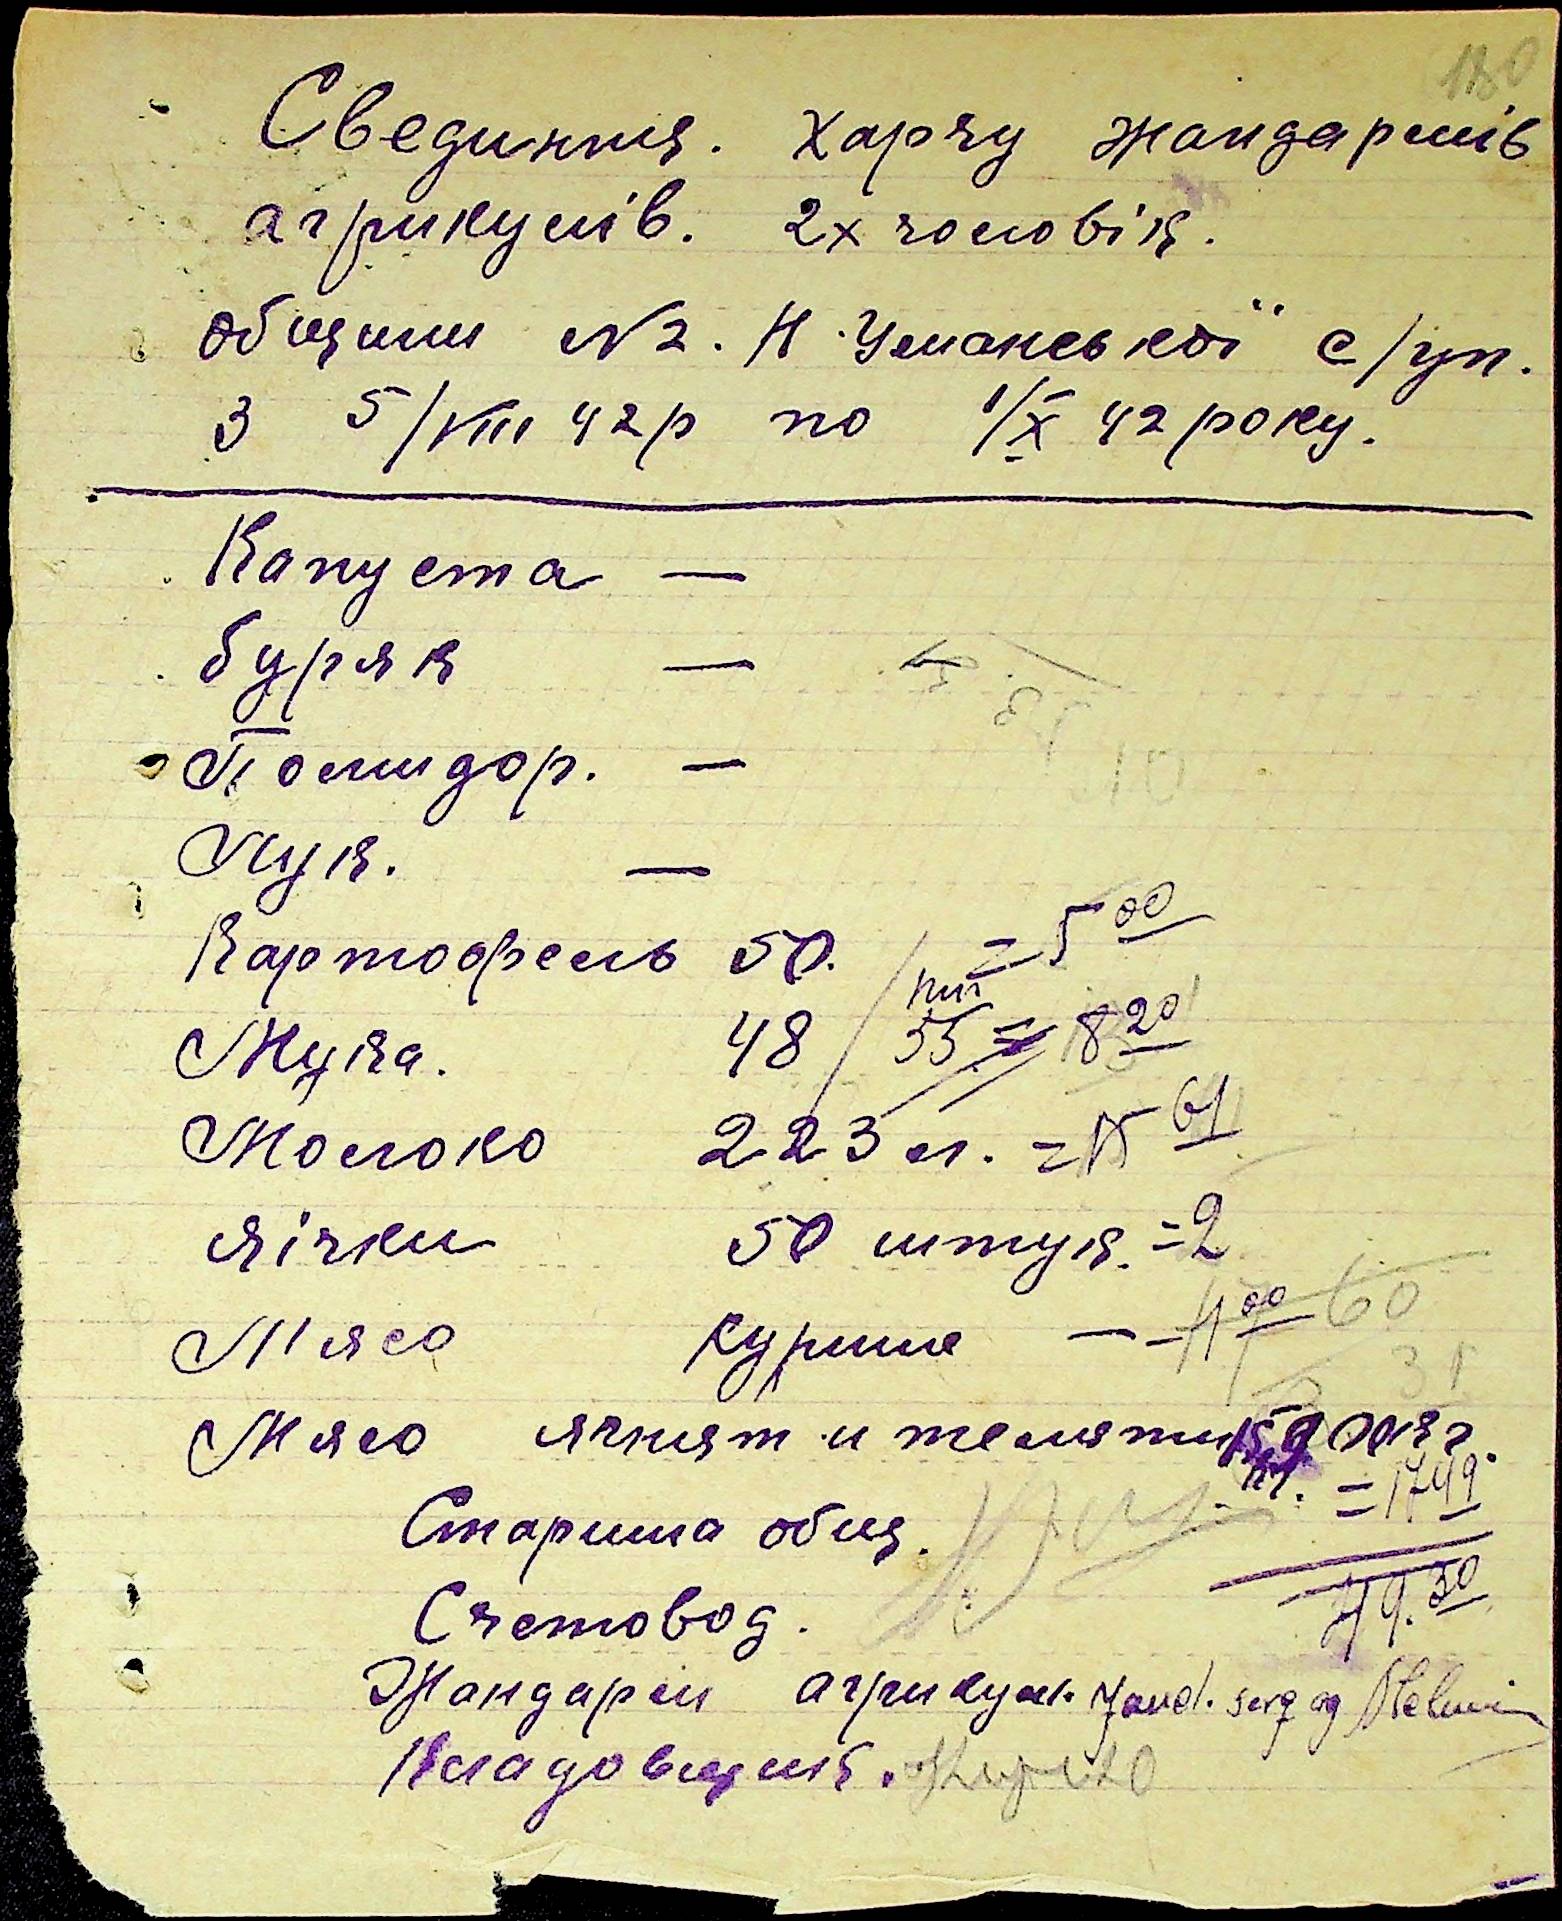 180
Свединня. харчу жандармів
агрикулів. 2х чоловік.
общини №2. Н. Уманської с/уп.
З 5/VIII 42р по 1/X 42 року.
Капуста —
буряк —
Помидор. —
Лук. —
Картофель 50. = 5 00
Мука. 48 / 55 = 8 20
Молоко 223 л. = 15 61
яічки 50 штук. = 2
Мясо куряше — - 1 00 60
Мясо ячнят и теляти кг.
= 1749
Старшша общ.
Счетовод. 49.30
Жандарм агрикул. Jand. serg ag
Кладовщик.